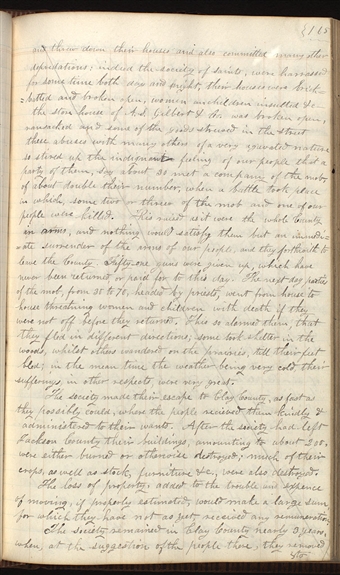 115
and threw down their houses and also committed many other
depredations; indeed the society of saints, were harrassed
for some time both day and night, their houses were brick-
=batted and broken open, women and children insulted &c—
the store house of A. S. Gilbert & Co. was broken open,
ransacked and some of the goods strewed in the street
these abuses with many others of a very aggravated nature
so stired up the indignant feeling of our people that a
party of them, say about 30 met a company of the mob,
of about double their number, when a battle took place
in which, some two or three of the mob and one of our
people were killed. This raised as it were the whole County
in arms, and nothing would satisfy them but an immedi-
ate surrender of the arms of our people, and they forthwith to
leave the County. Fifty-one guns were given up, which have
never been returned or paid for to this day. The next day parties
of the mob, from 50 to 70, headed by priests, went from house to
house threatning women and children with death if they
were not off before they returned. This so alarmed them, that
they fled in different directions; some took shelter in the
woods, whilst others wandered on the prairies, till their feet
bled; in the mean time the weather being very cold, their
sufferings, in other respects, were very great.
The society made their escape to Clay County, as fast as
they possibly could, where the people recieved them kindly &
administered to their wants. After the society had left
Jackson County their buildings, amounting to about 200,
were either burned or otherwise destroyed; much of their
crops, as well as stock, furniture &c, were also destroyed.
The loss of property, added to the trouble and expence
of moving, if properly estimated, would make a large sum,
for which they have not as yet, received any remuneration
The society remained in Clay County nearly 3 years,
when, at the suggestion of the people there, they removed